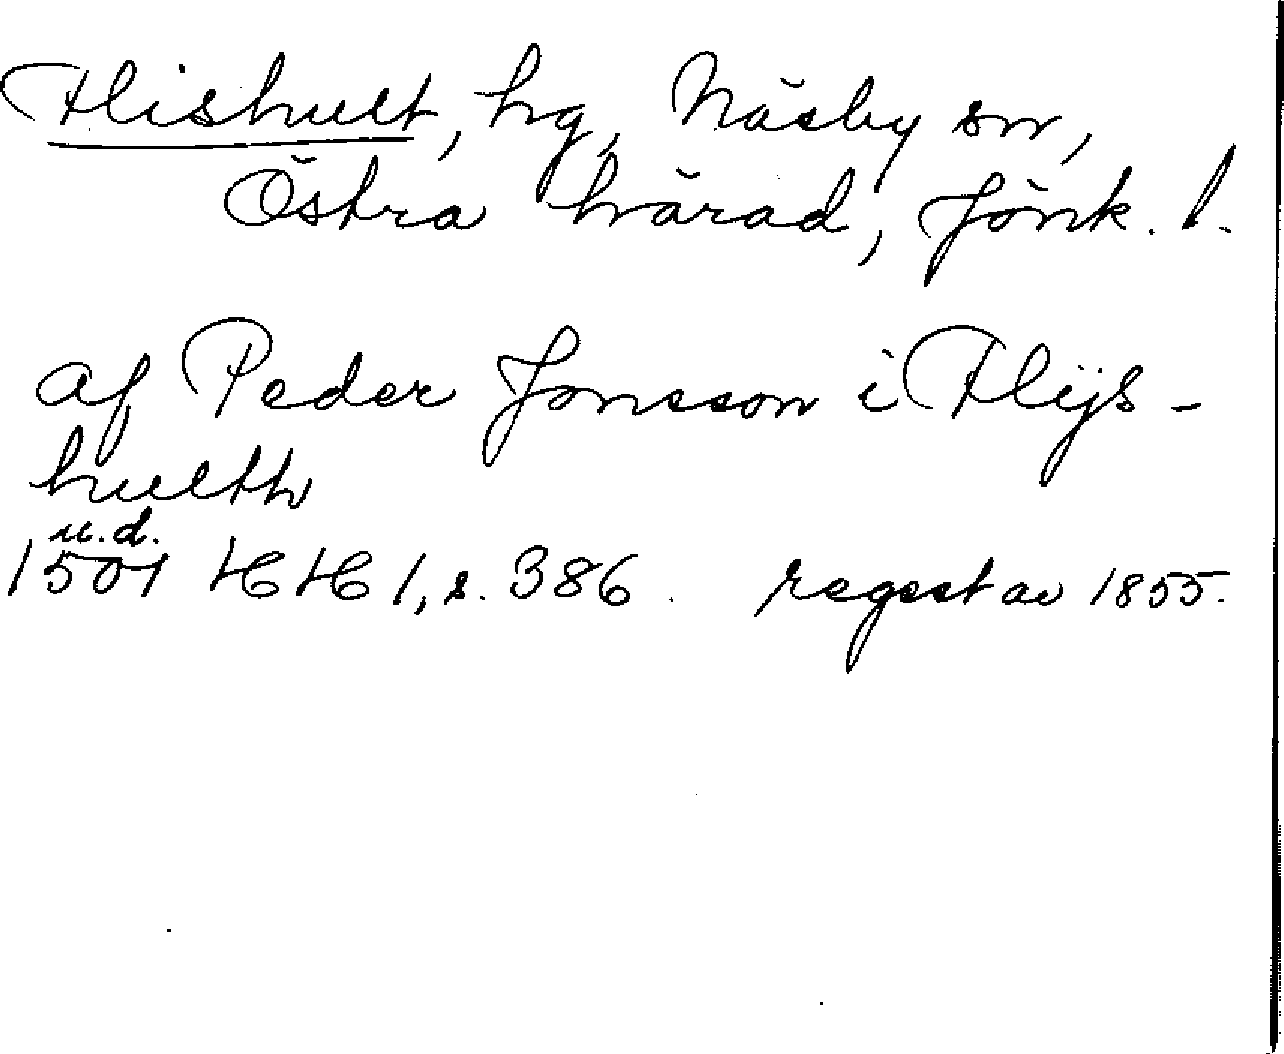 Flishult, hg, Näsby sn,
Östra härad, Jönk. l.
af Peder Jonsson i Flijs-
hullth
u.d.
1501 HH 1, s. 386. regest av 1855.